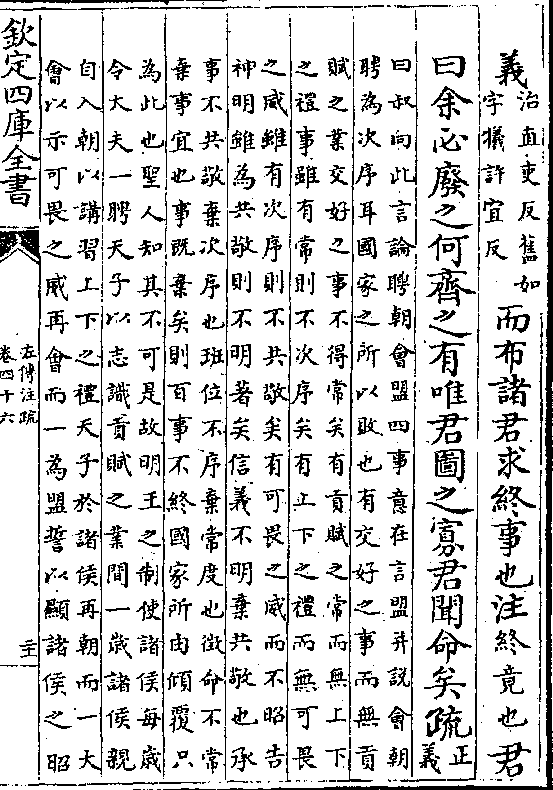 義治直吏反舊如
字犧許宜反
而布諸君求終事也注終竟也君
曰余必廢之何齊之有唯君圖之寡君聞命矣疏正義
曰叔向此言論聘朝會盟四事意在言盟并說會朝
聘為次序耳國家之所以敗也有交好之事而無貢
賦之業交好之事不得常矣有貢賦之常而無上下
之禮事雖有常則不次序矣有上下之禮而無可畏
之威雖有次序則不共敬矣有可畏之威而不昭告
神明雖為共敬則不明著矣信義不明棄共敬也承
事不共敬棄次序也班位不序棄常度也徵命不常
棄事宜也事既棄矣則百事不終國家所由傾覆只
為此也聖人知其不可是故明王之制使諸侯每歲
令大夫一聘天子以志識貢賦之業間一歲諸侯親
自入朝以講習上下之禮天子於諸侯再朝而一大
會以示可畏之威再會而一為盟誓以顯諸侯之昭
欽定四庫全書
左傳注疏
卷四十六